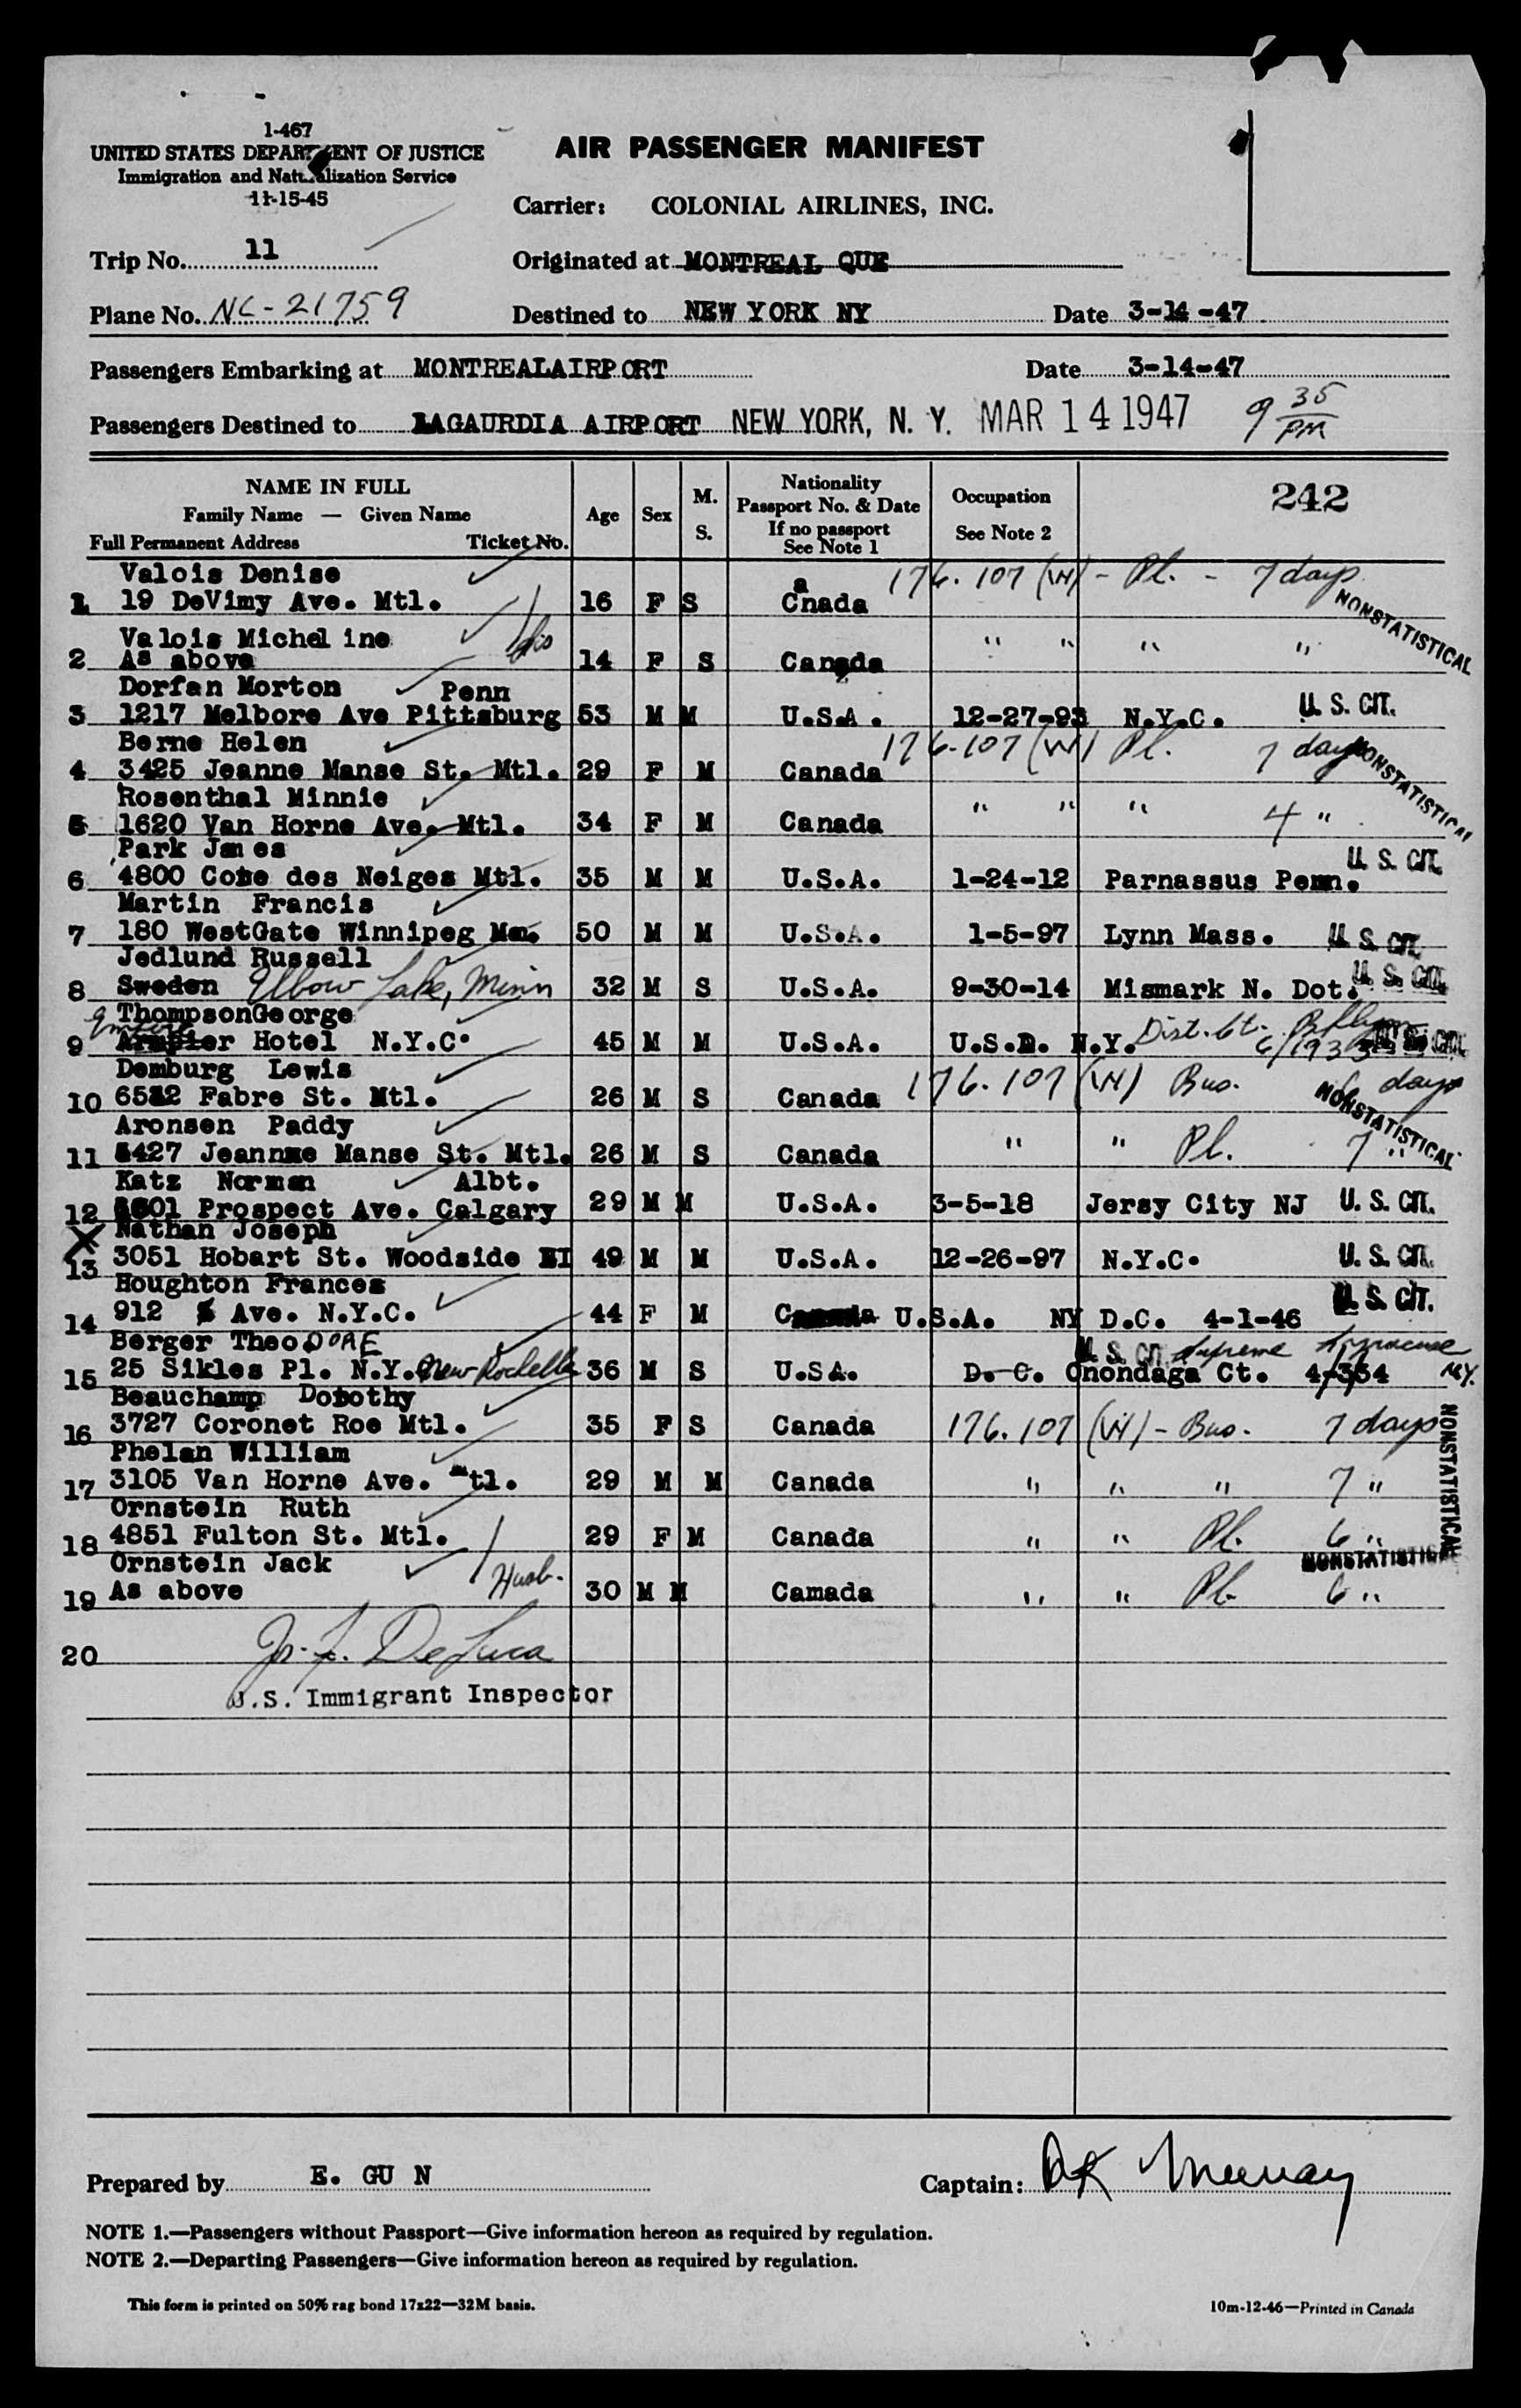 1-467
UNITED STATES DEPARTMENT OF JUSTICE
Immigration and Naturalization Service
11-15-45
AIR PASSENGER MANIFEST
Carrier: COLONIAL AIRLINES, INC.
Trip No. 11
Originated at MONTREAL QUE
Plane No. NC-21759
Destined to NEW YORK NY Date 3-14-47
Passengers Embarking at MONTREALAIRPORT Date 3-14-47
Passengers Destined to LAGAURDIA AIRPORT NEW YORK, N. Y. MAR 14 1947 9 35 PM
NAME IN FULL
Family Name — Given Name
Full Permanent Address Ticket No.
Age Sex M. S.
Nationality
Passport No. & Date
If no passport
See Note 1
Occupation
See Note 2
242
Valois Denise 176.107 (W) - Pl. - 7 days
1 19 DeVimy Ave. Mtl. 16 F S Canada NONSTATISTICAL
Valois Micheline sis " " " "
2 As above 14 F S Canada
Dorfan Morton Penn
3 1217 Melbore Ave Pittsburg 53 M M U.S.A. 12-27-93 N.Y.C. U. S. CIT.
Berne Helen 176.107 (W) Pl. 7 days
4 3425 Jeanne Manse St. Mtl. 29 F M Canada NONSTATISTICAL
Rosenthal Minnie " " " 4 "
5 1620 Van Horne Ave. Mtl. 34 F M Canada
Park James U. S. CIT.
6 4800 Cote des Neiges Mtl. 35 M M U.S.A. 1-24-12 Parnassus Penn.
Martin Francis
7 180 WestGate Winnipeg Man. 50 M M U.S.A. 1-5-97 Lynn Mass. U. S. CIT.
Jedlund Russell
8 Sweden Elbow Lake, Minn 32 M S U.S.A. 9-30-14 Mismark N. Dot. U. S. CIT.
ThompsonGeorge
Empire
9 Hotel N.Y.C. 45 M M U.S.A. U.S.D. N.Y. Dist. Ct. Bklyn 6/1933 U. S. CIT.
Demburg Lewis 176.107 (W) Bus. 6 days
10 6582 Fabre St. Mtl. 26 M S Canada NONSTATISTICAL
Aronsen Paddy
11 5427 Jeannme Manse St. Mtl. 26 M S Canada " " Pl. 7 "
Katz Norman Albt.
12 Prospect Ave. Calgary 29 M M U.S.A. 3-5-18 Jersy City NJ U. S. CIT.
Nathan Joseph
X
13 3051 Hobart St. Woodside LI 49 M M U.S.A. 12-26-97 N.Y.C. U. S. CIT.
Houghton Frances
14 912 5 Ave. N.Y.C. 44 F M Canada U.S.A. NY D.C. 4-1-46 U. S. CIT.
Berger TheoDORE U. S. CIT. Supreme Syracuse
15 25 Sikles Pl. N.Y. New Rochelle 36 M S U.S.A. D. C. Onondaga Ct. 4/3/34 N.Y.
Beauchamp Dorothy
16 3727 Coronet Roe Mtl. 35 F S Canada 176.107 (W) - Bus. 7 days NONSTATISTICAL
Phelan William
17 3105 Van Horne Ave. Mtl. 29 M M Canada " " " 7 "
Ornstein Ruth
18 4851 Fulton St. Mtl. 29 F M Canada " " Pl. 6 "
Ornstein Jack Husb. NONSTATISTICAL
19 As above 30 M M Camada " " Pl. 6 "
20 De Luca
U.S. Immigrant Inspector
Prepared by E. GU N
Captain:
NOTE 1.—Passengers without Passport—Give information hereon as required by regulation.
NOTE 2.—Departing Passengers—Give information hereon as required by regulation.
This form is printed on 50% rag bond 17x22—32M basis.
10m-12-46—Printed in Canada